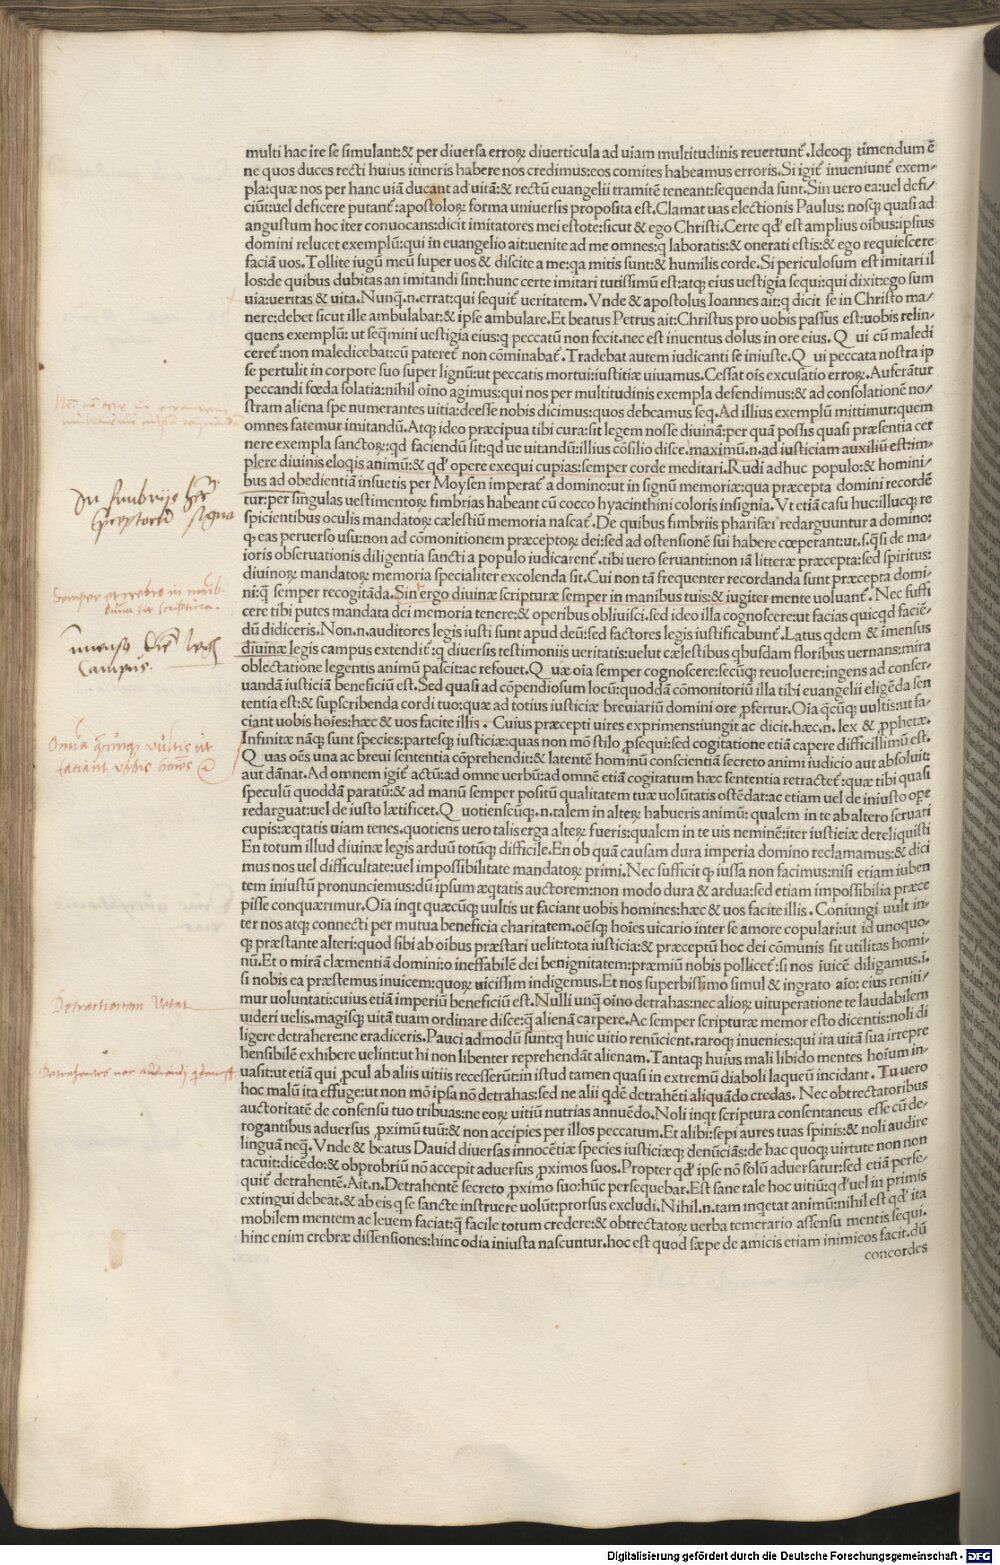 multi hac ire se simulant:& per diuersa errorꝝ diuerticula ad uiam multitudinis reuertunt᷒.Ideoqꝫ timendum ē
ne quos duces recti huius itineris habere nos credimus:eos comites habeamus erroris.Si igit᷒ inueniunt᷒ exem-
pla:quæ nos per hanc uiā ducant ad uitā:& rectū euangelii tramitē teneant:sequenda sunt.Sin uero ea:uel defi/
ciūt:uel deficere putant᷒:apostolorꝝ forma uniuersis proposita est.Clamat uas electionis Paulus: nosqꝫ quasi ad
angustum hoc iter conuocans:dicit imitatores mei estote:sicut & ego Christi.Certe qd᷒ est amplius oībus:ipsius
domini relucet exemplū:qui in euangelio ait:uenite ad me omnes:q laboratis:& onerati estis:& ego requiescere
faciā uos.Tollite iugū meū super uos & discite a me:qa mitis sum:& humilis corde.Si periculosum est imitari il
los:de quibus dubitas an imitandi sint:hunc certe imitari tutissimū est:atqꝫ eius uestigia sequi:qui dixit:ego sum
uia:ueritas & uita.Nunq̄.n.errat:qui sequit᷒ ueritatem.Vnde & apostolus Ioannes ait:q dicit se in Christo ma/
nere:debet sicut ille ambulabat:& ipse ambulare.Et beatus Petrus ait:Christus pro uobis passus est:uobis relin-
quens exemplū:ut seq̄mini uestigia eius:q peccatū non fecit.nec est inuentus dolus in ore eius.Q ui cū maledi
ceret᷒:non maledicebat:cū pateret᷒ non cōminabat᷒.Tradebat autem iudicanti se iniuste.Q ui peccata nostra ip
se pertulit in corpore suo super lignū:ut peccatis mortui:iustitiæ uiuamus.Cessat oīs excusatio errorꝝ.Auferātur
peccandi fœda solatia:nihil oīno agimus:qui nos per multitudinis exempla defendimus:& ad consolationē no/
stram aliena spe numerantes uitia:deesse nobis dicimus:quos debeamus seq.Ad illius exemplū mittimur:quem
omnes fatemur imitandū.Atqꝫ ideo præcipua tibi cura:sit legem nosse diuinā:per quā possis quasi præsentia cer
nere exempla sanctorꝝ:qd faciendū sit:qd ue uitandū:illius cōsilio disce.maximū.n.ad iusticiam auxiliū est:im-
plere diuinis eloqis animū:& qd᷒ opere exequi cupias:semper corde meditari.Rudi adhuc populo:& homini/
bus ad obedientiā insuetis per Moysen imperat᷒ a domino:ut in signū memoriæ:qua præcepta domini recordē
tur:per singulas uestimentorꝝ fimbrias habeant cū cocco hyacinthini coloris insignia.Vt etiā casu huc:illucqꝫ re
spicientibus oculis mandatorꝝ cælestiū memoria nascat᷒.De quibus fimbriis pharisæi redarguuntur a domino:
ꝙ eas peruerso usu:non ad cōmonitionem præceptorꝝ dei:sed ad ostensionē sui habere cœperant:ut.s.q̄si de ma/
ioris obseruationis diligentia sancti a populo iudicarent᷒.tibi uero seruanti:non iā litteræ præcepta:sed spiritus:
diuinorꝝ mandatorꝝ memoria specialiter excolenda sit.Cui non tā frequenter recordanda sunt præcepta domi/
ni:q̄ semper recogitāda.Sint ergo diuinæ scripturæ semper in manibus tuis:& iugiter mente uoluant᷒.Nec suffi
cere tibi putes mandata dei memoria tenere:& operibus obliuisci.sed ideo illa cognoscere:ut facias quicqd faciē/
dū didiceris.Non.n.auditores legis iusti sunt apud deū:sed factores legis iustificabunt᷒.Latus qdem & īmensus
diuinæ legis campus extendit᷒:q diuersis testimoniis ueritatis:uelut cælestibus qbusdam floribus uernans:mira
oblectatione legentis animū pascit:ac refouet.Q uæ oīa semper cognoscere:secūqꝫ reuoluere:ingens ad conser/
uandā iusticiā beneficiū est.Sed quasi ad cōpendiosum locū:quoddā cōmonitoriū illa tibi euangelii eligēda sen
tentia est:& supscribenda cordi tuo:quæ ad totius iusticiæ breuiariū domini ore ꝓfertur.Oīa q̄cūqꝫ uultis:ut fa/
ciant uobis hoīes:hæc & uos facite illis . Cuius præcepti uires exprimens:iungit ac dicit.hæc.n.lex & ꝓphetæ.
Infinitæ nāqꝫ sunt species:partesqꝫ iusticiæ:quas non mō stilo ꝓsequi:sed cogitatione etiā capere difficillimū est.
Q uas oēs una ac breui sententia cōprehendit:& latentē hominū conscientiā secreto animi iudicio aut absoluit:
aut dānat.Ad omnem igit᷒ actū:ad omne uerbū:ad omnē etiā cogitatum hæc sententia retractet᷒:quæ tibi quasi
speculū quoddā paratū:& ad manū semper positū qualitatem tuæ uolūtatis ostēdat:ac etiam uel de iniusto ope
redarguat:uel de iusto lætificet.Q uotienscūqꝫ.n.talem in alterꝝ habueris animū: qualem in te ab altero seruari
cupis:æqtatis uiam tenes.quotiens uero talis erga alterꝝ fueris:qualem in te uis neminē:iter iusticiæ dereliquisti
En totum illud diuinæ legis arduū totūqꝫ difficile.En ob quā causam dura imperia domino reclamamus:& dici
mus nos uel difficultate:uel impossibilitate mandatorꝝ primi.Nec sufficit ꝙ iussa non facimus:nisi etiam iuben
tem iniustū pronunciemus:dū ipsum æqtatis auctorem:non modo dura & ardua:sed etiam impossibilia præce
pisse conquærimur.Oīa inqt quæcūqꝫ uultis ut faciant uobis homines:hæc & uos facite illis . Coniungi uult in-
ter nos atqꝫ connecti per mutua beneficia charitatem.oēsqꝫ hoīes uicario inter se amore copulari:ut id unoquo-
qꝫ præstante alteri:quod sibi ab oibus præstari uelit:tota iusticia:& præceptū hoc dei cōmunis sit utilitas homi-
nū.Et o mirā clæmentiā domini:o ineffabilē dei benignitatem:præmiū nobis pollicet᷒:si nos īuicē diligamus.i.
si nobis ea præstemus inuicem:quorꝝ uicissim indigemus.Et nos superbissimo simul & ingrato aīo: eius reniti/
mur uoluntati:cuius etiā imperiū beneficiū est.Nulli unq̄ oīno detrahas:nec aliorꝝ uituperatione te laudabilem
uideri uelis.magisqꝫ uitā tuam ordinare disce:q̄ alienā carpere.Ac semper scripturæ memor esto dicentis:noli di
ligere detrahere:ne eradiceris.Pauci admodū sunt:q huic uitio renūcient.raroqꝫ inuenies:qui ita uitā sua irrepre
hensibilē exhibere uelint:ut hi non libenter reprehendāt alienam.Tantaqꝫ huius mali libido mentes hoīum in-
uasit:ut etiā qui ꝓcul ab aliis uitiis recesserūt:in istud tamen quasi in extremū diaboli laqueū incidant . Tu uero
hoc malū ita effuge:ut non mō ipsa nō detrahas:sed ne alii qdē detrahēti aliquādo credas. Nec obtrectatoribus
auctoritatē de consensu tuo tribuas:ne eorꝝ uitiū nutrias annuēdo.Noli inqt scriptura consentaneus esse cū de-
rogantibus aduersus ꝓximū tuū:& non accipies per illos peccatum.Et alibi:sepi aures tuas spinis:& noli audire
linguā neqꝫ.Vnde & beatus Dauid diuersas innocētiæ species iusticiæqꝫ denūciās:de hac quoqꝫ uirtute non non
tacuit:dicēdo:& obprobriū nō accepit aduersus ꝓximos suos.Propter qd᷒ ipse nō solū aduersatur:sed etiā perse-
quit᷒ detrahentē.Ait.n.Detrahentē secreto ꝓximo suo:hūc persequebar.Est sane tale hoc uitiū:qd᷒ uel in primis
extingui debeat.& ab eis q se sancte instruere uolūt:prorsus excludi.Nihil.n.tam inqetat animū:nihil est qd᷒ ita
mobilem mentem ac leuem faciat:q̄ facile totum credere:& obtrectatorꝝ uerba temerario assensu mentis sequi.
hinc enim crebræ dissensiones:hinc odia iniusta nascuntur.hoc est quod sæpe de amicis etiam inimicos facit.dū
concordes
semper et crebro in manib.
Campus.
Omnia quecunqꝫ vultis ut
faciant vobis homies
Detractionem vetat
Digitalisierung gefördert durch die Deutsche Forschungsgemeinschaft - DFG